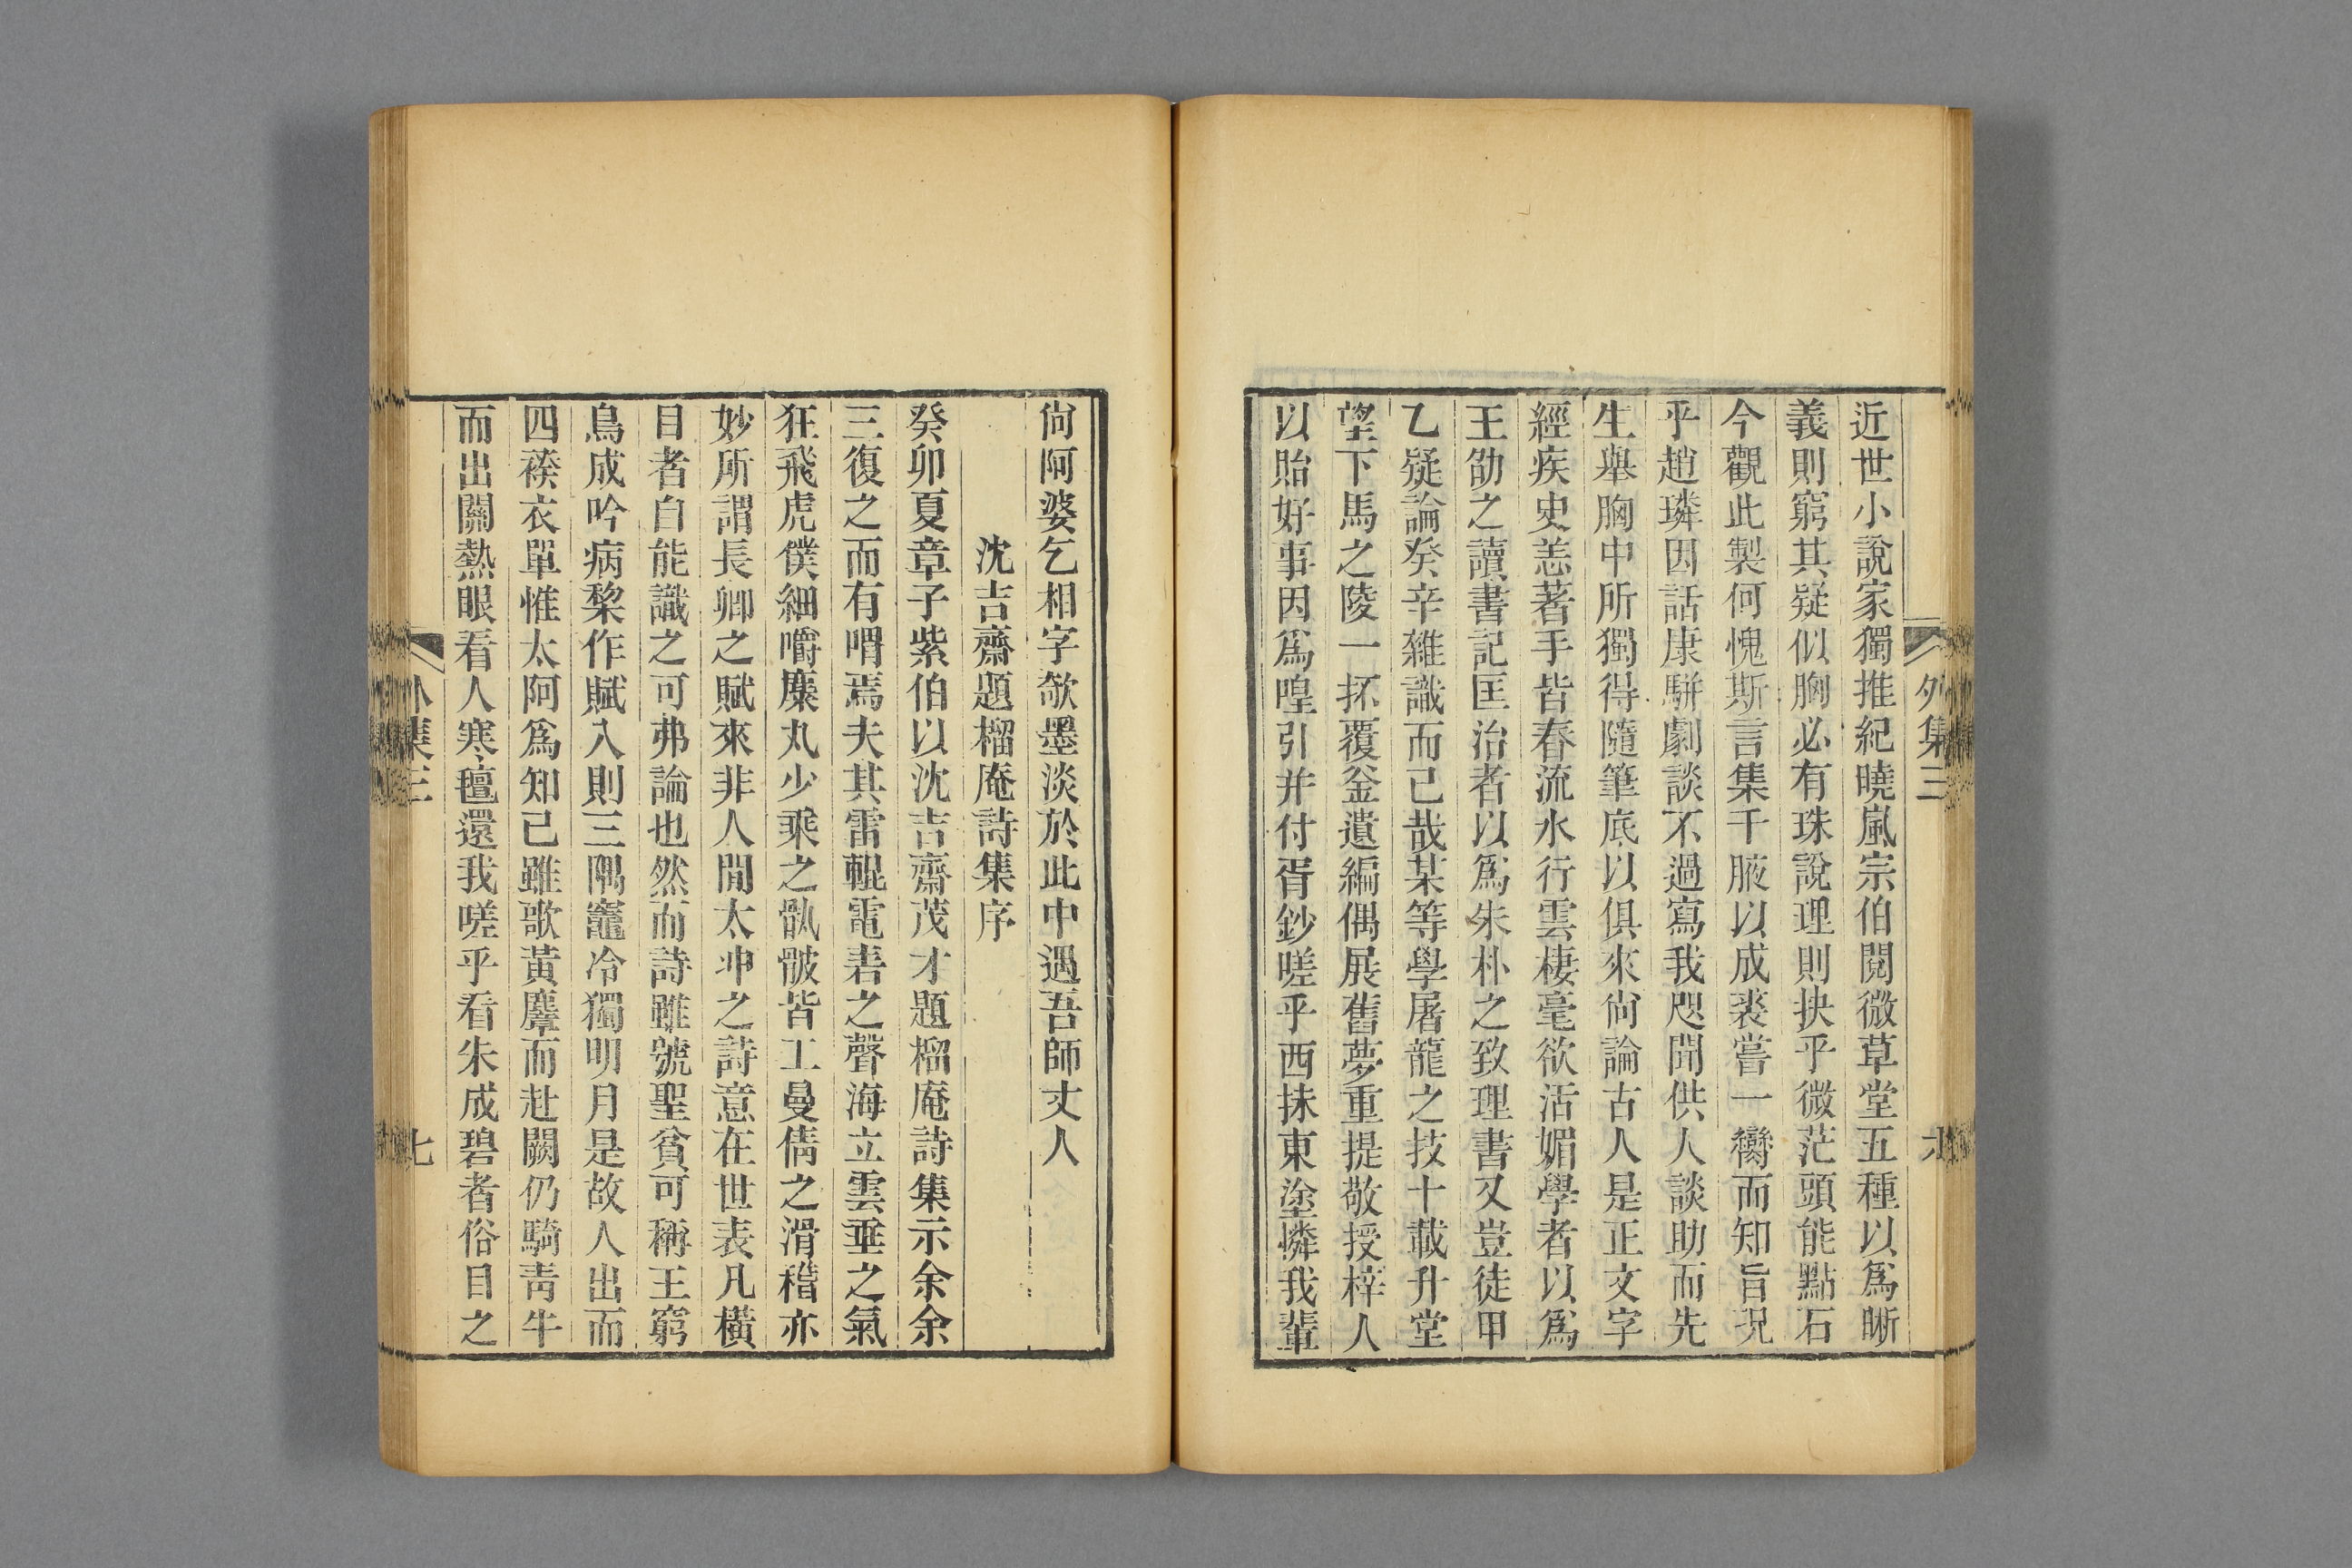 外集三
六
近世小說家獨推紀曉嵐宗伯閱微草堂五種以爲晰
義則窮其疑似胸必有珠說理則抉乎微茫頭能點石
今觀此製何愧斯言集千腋以成裘嘗一臠而知旨況
乎趙璘因話康駢劇談不過寫我咫聞供人談助而先
生舉胸中所獨得隨筆底以俱來尙論古人是正文字
經疾史恙著手皆春流水行雲棲毫欲活媚學者以爲
王劭之讀書記匡治者以爲朱朴之致理書又豈徒甲
乙疑論癸辛雜識而已哉某等學屠龍之技十載升堂
望下馬之陵一抔覆釜遺編偶展舊夢重提敬授梓人
以貽好事因爲喤引并付胥鈔嗟乎西抹東塗憐我輩
尙阿婆乞相字欹墨淡於此中遇吾師丈人
沈吉齋題榴庵詩集序
癸卯夏章子紫伯以沈吉齋茂才題榴庵詩集示余余
三復之而有喟焉夫其雷輥電砉之聲海立雲垂之氣
狂飛虎僕細嚼麋丸少乘之骩骳皆工曼倩之滑稽亦
妙所謂長卿之賦來非人間太冲之詩意在世表凡橫
目者自能識之可弗論也然而詩雖號聖貧可稱王窮
鳥成吟病棃作賦入則三隅竈冷獨明月是故人出而
四䙆衣單惟太阿爲知己雖歌黃麞而赴闕仍騎靑牛
而出關熱眼看人寒氊還我嗟乎看朱成碧者俗目之
外集三
七